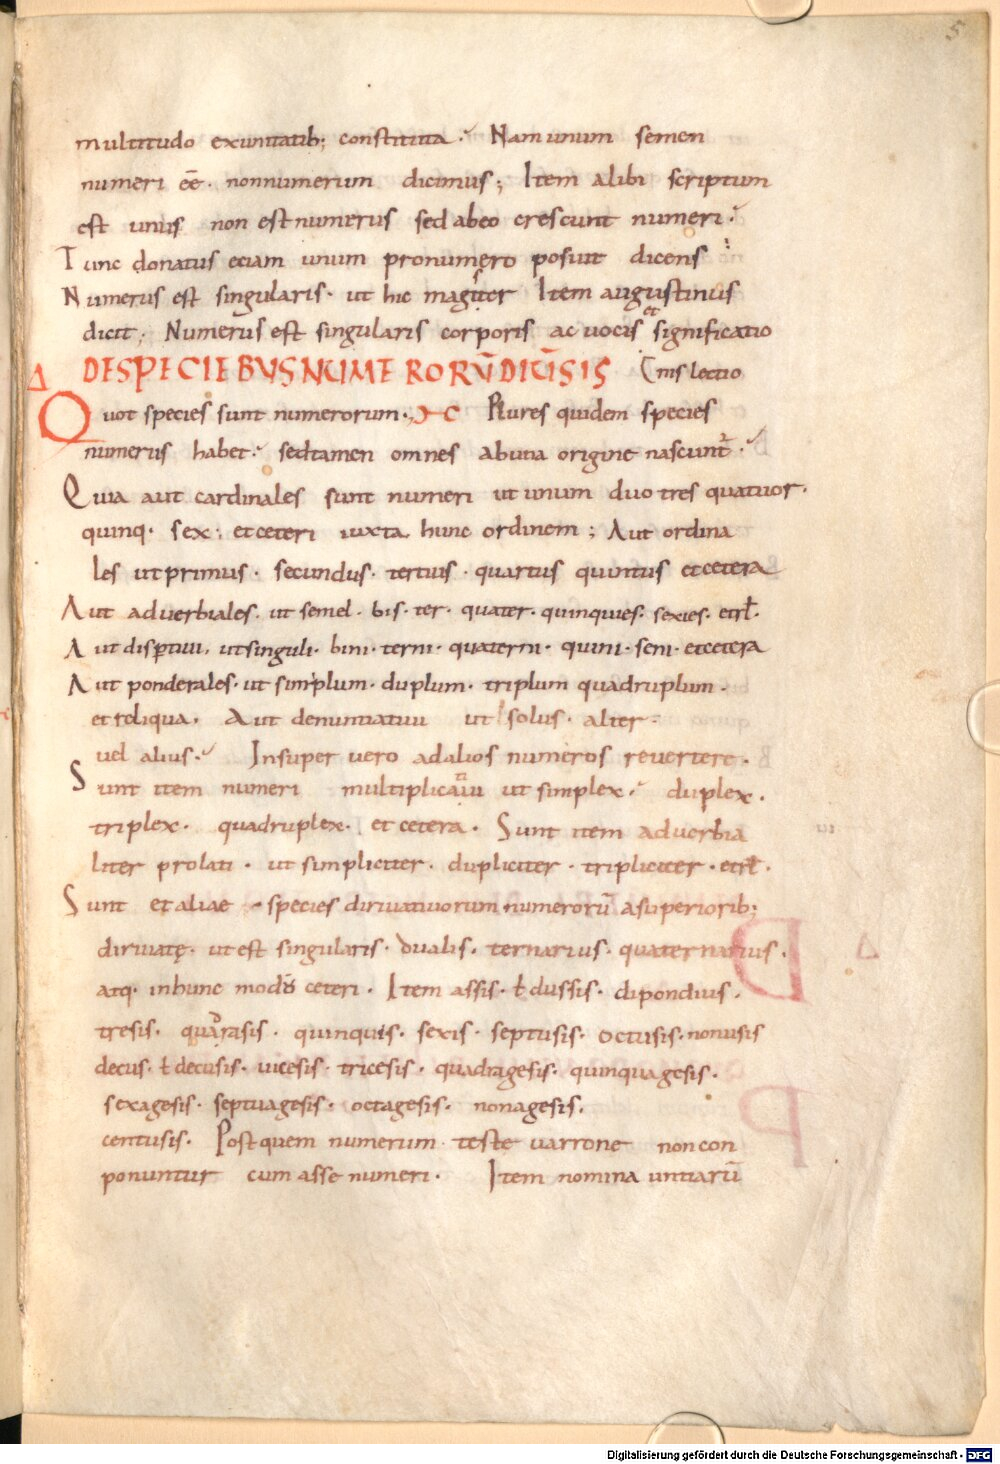 5
multitudo exunitatib; constituta. Nam unum semen
numeri eē. nonnumerum dicimus; Item alibi scriptum
est unus non est numerus sed abeo crescunt numeri.
Tunc donatus etiam unum pronumero posuit dicens
Numerus est singularis. ut hic magister Item augustinus
dicit; Numerus est singularis corporis ac uocis et significatio
DE SPECIEBUS NUMERORŪ DIUSIS nis lectio
Δ
Quot species sunt numerorum. Plures quidem species
numerus habet. sed tamen omnes abuna origine nascunt.
Quia aut cardinales sunt numeri ut unum duo tres quatuor.
quinq. sex. et ceteri iuxta hunc ordinem; Aut ordina
les ut primus. secundus. tertius. quartus quintus et cetera
Aut aduerbiales. ut semel. bis. ter. quater. quinquies. sexies. etrł.
Aut disptiui, ut singuli. bini. terni. quaterni. quini. seni. et cetera
Aut ponderales. ut simplum. duplum. triplum quadruplum.
et reliqua. Aut denuntiatiui ut solus. alter.
uel alius. Insuper uero ad alios numeros reuertere.
Sunt item numeri multiplicatiui ut simplex. duplex.
triplex. quadruplex. et cetera. Sunt item aduerbia
liter prolati. ut simpliciter. dupliciter. tripliciter. etrł.
Sunt et aliae species diriuatiuorum numerorū a superiorib;
diriuatę. ut est singularis. dualis. ternarius. quaternarius.
atq. inhunc modū ceteri. Item assis. ł dussis. dipondius.
tresis. quatrasis. quinquis. sexis. septusis. octusis. nonusis
decus. ł decusis. uicesis. tricesis. quadragesis. quinquagesis.
sexagesis. septuagesis. octagesis. nonagesis.
centusis. Post quem numerum teste uarrone non con
ponuntur cum asse numeri. Item nomina untiarū
Digitalisierung gefördert durch die Deutsche Forschungsgemeinschaft - DFG